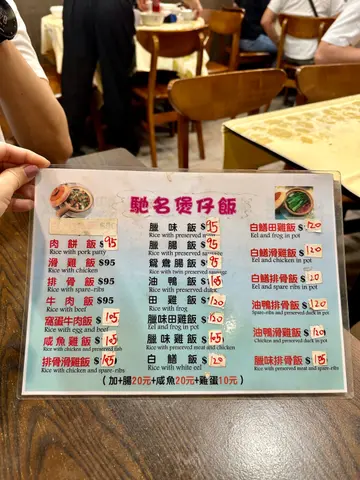 馳名煲仔飯
肉餅飯 $95
Rice with pork patty
滑雞飯 $95
Rice with chicken
排骨飯 $95
Rice with spare-ribs
牛肉飯 $95
Rice with beef
窩蛋牛肉飯 $105
Rice with egg and beef
咸魚雞飯 $105
Rice with chicken and preserved fish
排骨滑雞飯 $105
Rice with chicken and spare-ribs
臘味飯 $95
Rice with preserved
臘腸飯 $95
Rice with preserved sausage
鴛鴦腸飯 $95
Rice with twin preserved sausage
油鴨飯 $105
Rice with preserved duck
田雞飯 $120
Rice with frog
臘味田雞飯 $120
Eel and frog in pot
臘味雞飯 $105
Rice with preserved meat and chicken
白鱔飯 $120
Rice with white eel
白鱔田雞飯 $120
Eel and frog in pot
白鱔滑雞飯 $120
Eel and chicken in pot
白鱔排骨飯 $120
Eel and spare ribs in pot
油鴨排骨飯 $120
Spare-ribs and preserved duck in pot
油鴨滑雞飯 $120
Chicken and preserved duck in pot
臘味排骨飯 $105
Rice with preserved meat and spare-ribs
(加+腸20元+咸魚20元+雞蛋10元)